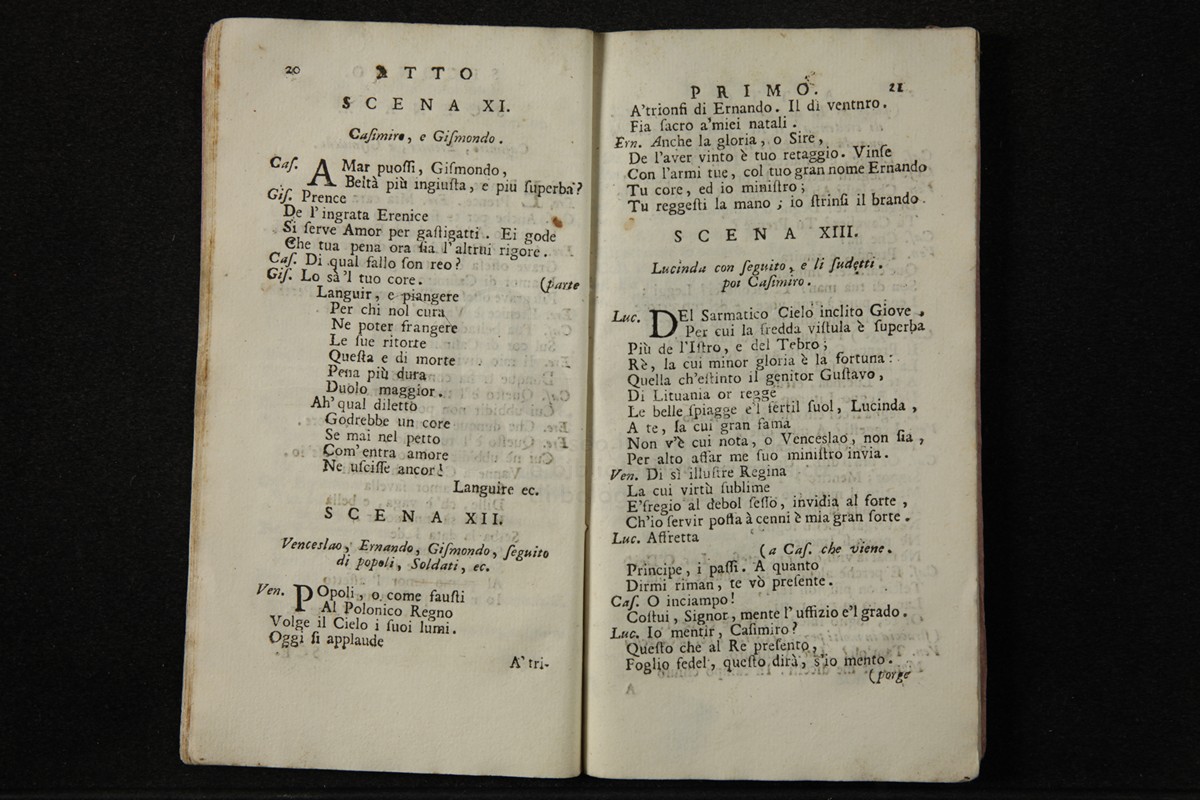 20 ATTO
SCENA XI.
Casimiro, e Gismondo.
Cas. AMar puossi, Gismondo,
Beltà più ingiusta, e più superba?
Gis. Prence
De l'ingrata Erenice
Si serve Amor per gastigatti. Ei gode
Che tua pena ora sia l'altrui rigore.
Cas. Di qual fallo son reo?
Gis. Lo sà'l tuo core. (parte
Languir, e piangere
Per chi nol cura
Ne poter frangere
Le sue ritorte
Questa e di morte
Pena più dura
Duolo maggior.
Ah' qual diletto
Godrebbe un core
Se mai nel petto
Com'entra amore
Ne uscisse ancor!
Languire ec.
SCENA XII.
Venceslao, Ernando, Gismondo, seguito
di popoli, Soldati, ec.
Ven. POpoli, o come fausti
Al Polonico Regno
Volge il Cielo i suoi lumi.
Oggi si applaude
A' tri-
PRIMO. 21
A'trionfi di Ernando. Il dì ventnro.
Fia sacro a'miei natali.
Ern. Anche la gloria, o Sire,
De l'aver vinto è tuo retaggio. Vinse
Con l'armi tue, col tuo gran nome Ernando
Tu core, ed io ministro;
Tu reggesti la mano; io strinsi il brando.
SCENA XIII.
Lucinda con seguito, e li sudetti.
poi Casimiro.
Luc. DEl Sarmatico Cielo inclito Giove,
Per cui la fredda vistula è superba
Più de l'Istro, e del Tebro;
Rè, la cui minor gloria è la fortuna:
Quella ch'estinto il genitor Gustavo,
Di Lituania or regge
Le belle spiagge e'l fertil suol, Lucinda,
A te, la cui gran fama
Non v'è cui nota, o Venceslao, non sia,
Per alto affar me suo ministro invia.
Ven. Di sì illustre Regina
La cui virtù sublime
E'fregio al debol sesso, invidia al forte,
Ch'io servir possa à cenni è mia gran sorte.
Luc. Affretta
(a Cas. che viene.
Principe, i passi. A quanto
Dirmi riman, te vò presente.
Cas. O inciampo!
Costui, Signor, mente l'uffizio e'l grado.
Luc. Io mentir, Casimiro?
Questo che al Rè presento,
Foglio fedel, questo dirà, s'io mento.
(porge